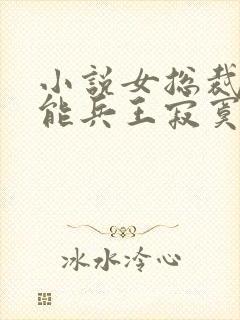 小說女总裁
能兵王寂寞
冰水冷心